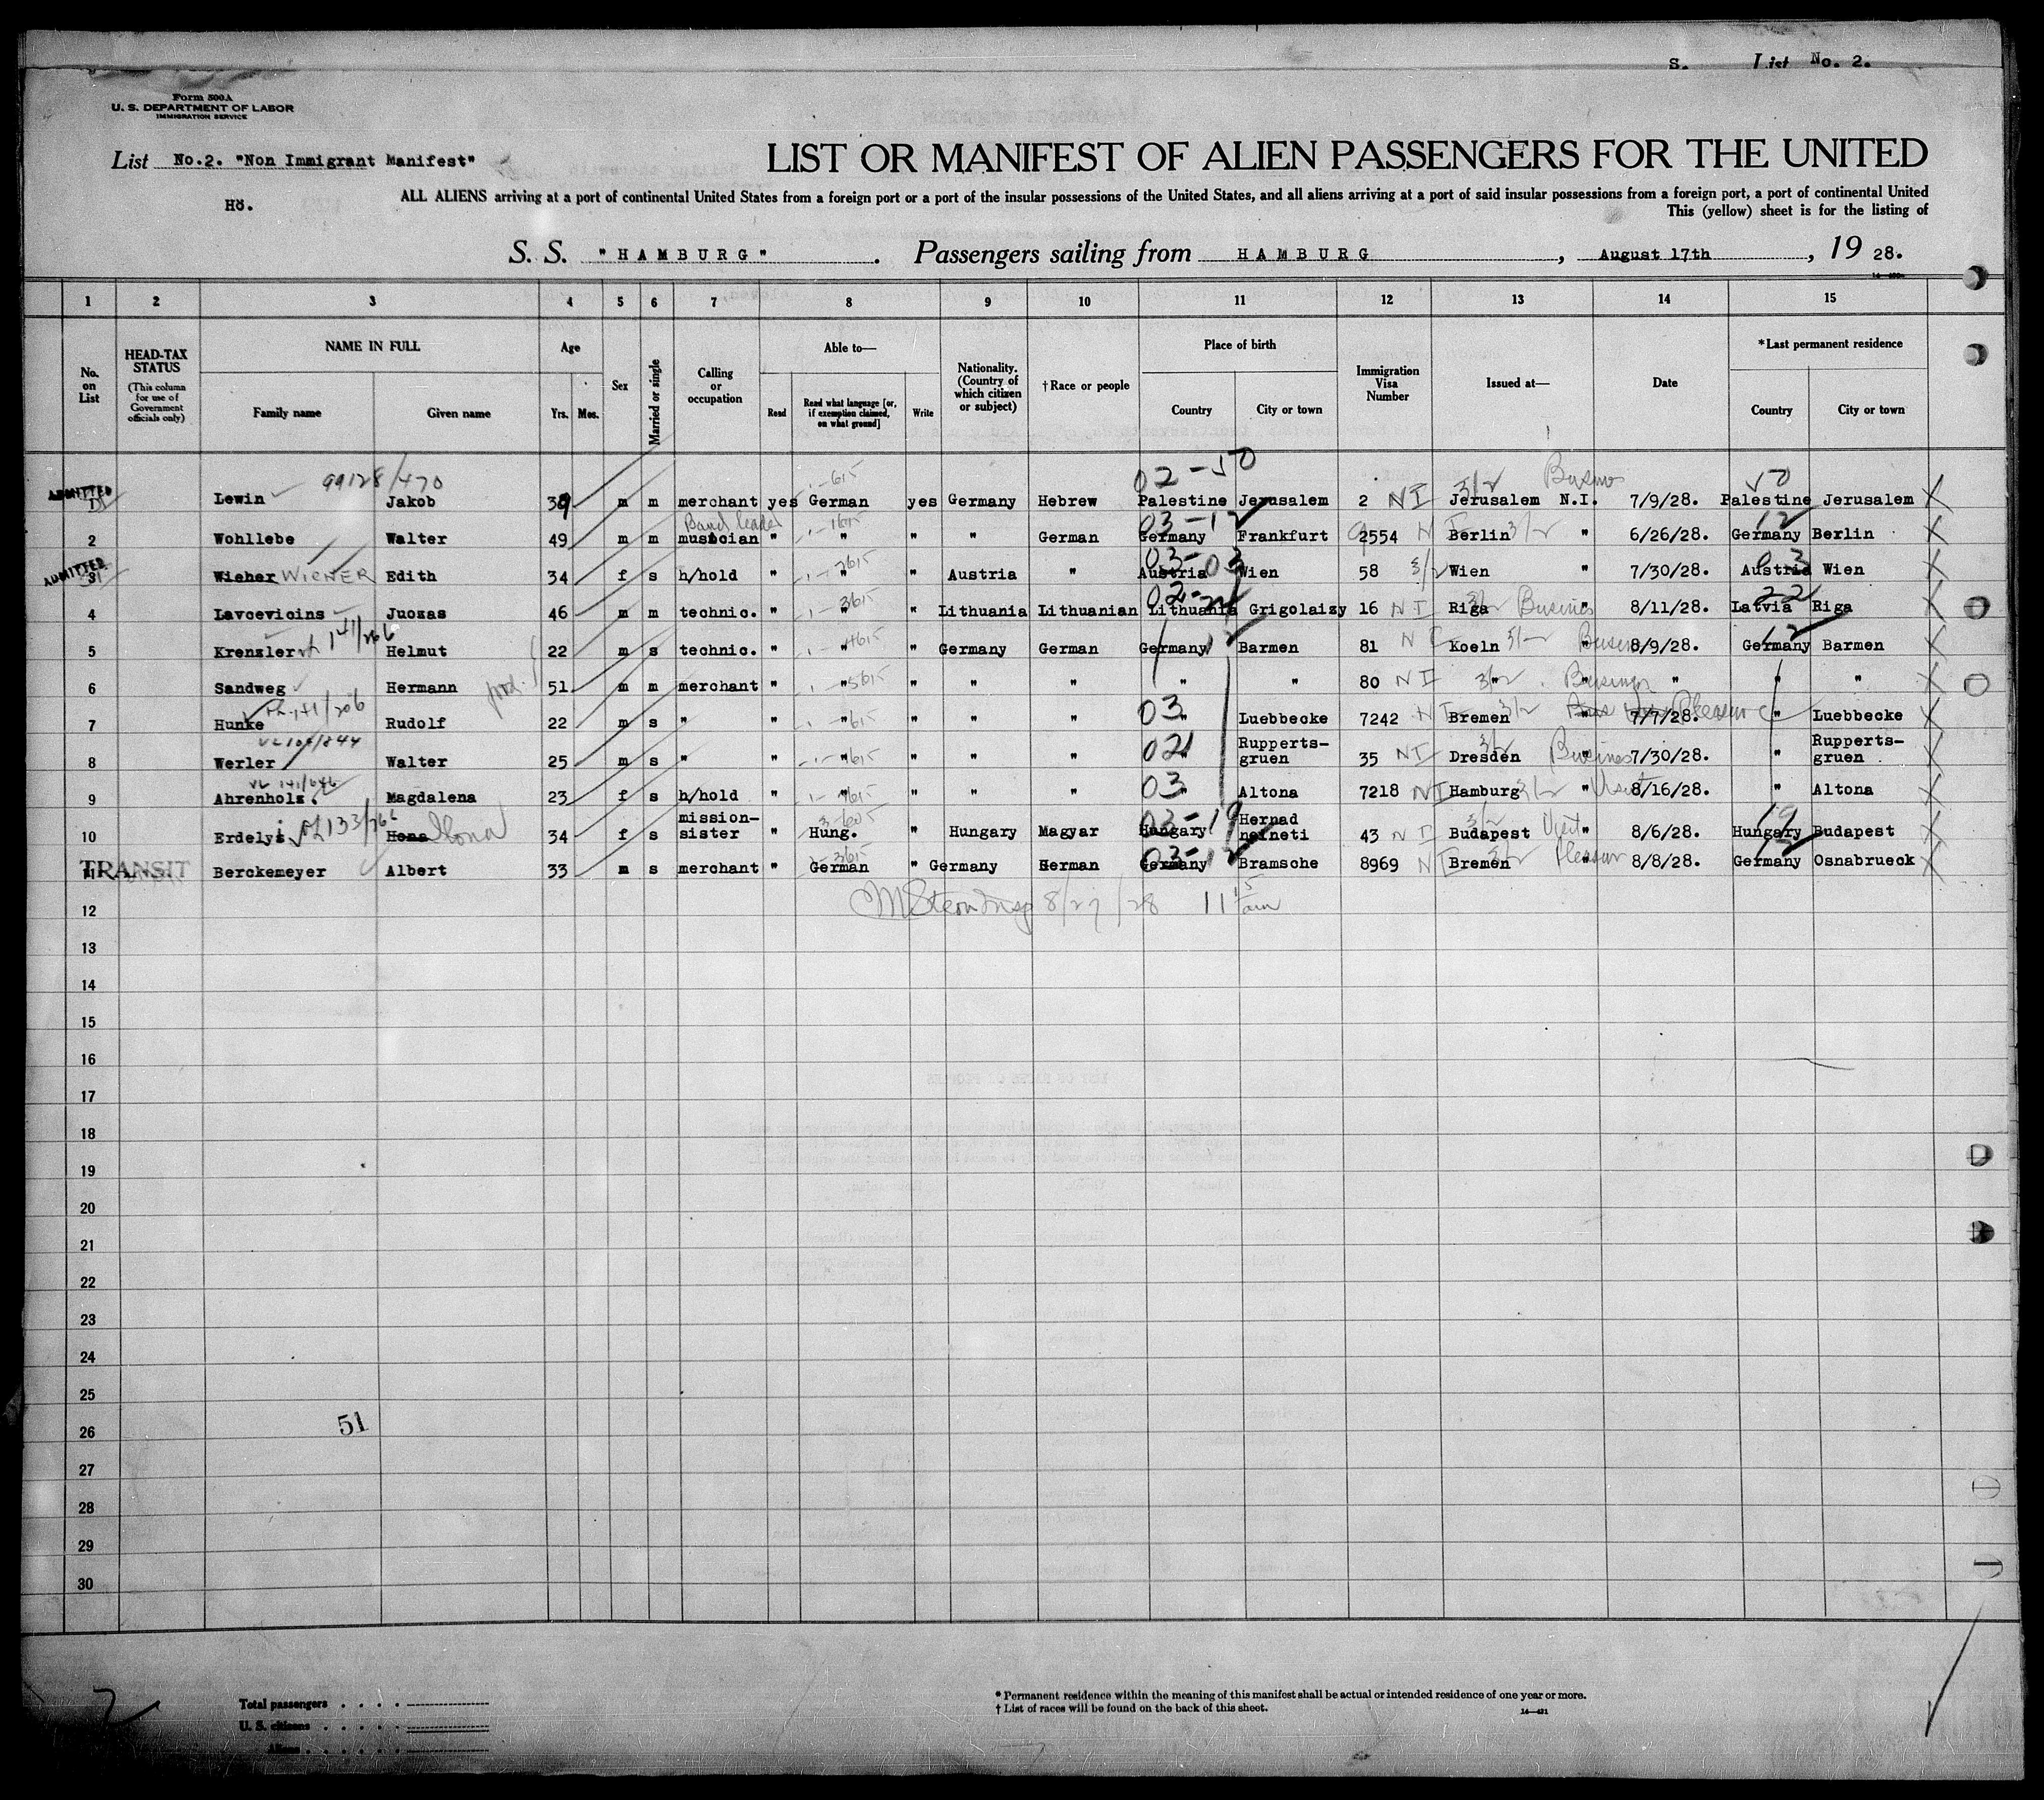 S. List No. 2.
Form 500A
U. S. DEPARTMENT OF LABOR
IMMIGRATION SERVICE
List No.2. "Non Immigrant Manifest"
LIST OR MANIFEST OF ALIEN PASSENGERS FOR THE UNITED
Hö.
ALL ALIENS arriving at a port of continental United States from a foreign port or a port of the insular possessions of the United States, and all aliens arriving at a port of said insular possessions from a foreign port, a port of continental United
This (yellow) sheet is for the listing of
S. S. "HAMBURG". Passengers sailing from HAMBURG, August 17th, 19 28.
1 2 3 4 5 6 7 8 9 10 11 12 13 14 15
No. on List
HEAD-TAX STATUS (This column for use of Government officials only)
NAME IN FULL
Family name Given name
Age
Yrs. Mos.
Sex
Married or single
Calling or occupation
Able to—
Read Read what language [or, if exemption claimed, on what ground] Write
Nationality. (Country of which citizen or subject)
† Race or people
Place of birth
Country City or town
Immigration Visa Number
Issued at—
Date
*Last permanent residence
Country City or town
99128/470 02-50 3/2 50
ADMITTED 1 Lewin Jakob 39 m m merchant yes German yes Germany Hebrew Palestine Jerusalem 2 NI Jerusalem N.I. 7/9/28. Palestine Jerusalem X
Band leader 03-12 12
2 Wohllebe Walter 49 m m musician " " " " German Germany Frankfurt 2554 NI Berlin 3/2 " 6/26/28. Germany Berlin X
03-03 03
ADMITTED 3 Wieher WIENER Edith 34 f s h/hold " " " Austria " Austria Wien 58 3/2 Wien " 7/30/28. Austria Wien X
22
4 Lavcevicins Juozas 46 m m technic. " " " Lithuania Lithuanian Lithuania Grigolaizy 16 NI Riga Business " 8/11/28. Latvia Riga X
141/266 12 12
5 Krenzler Helmut 22 m s technic. " " " Germany German Germany Barmen 81 NI Koeln 3/2 " 8/9/28. Germany Barmen X
6 Sandweg Hermann 51 m m merchant " " " " " " " 80 NI " 3/2 Business " " " X
141/206 03
7 Hunke Rudolf 22 m s " " " " " " " Luebbecke 7242 NI Bremen 3/2 " 7/7/28. Pleasure " Luebbecke X
02
8 Werler Walter 25 m s " " " " " " " Ruppertsgruen 35 NI Dresden 3/2 Business " 7/30/28. " Ruppertsgruen X
141/646 03
9 Ahrenholz. Magdalena 23 f s h/hold " " " " " " Altona 7218 NI Hamburg 3/2 " Visit 8/16/28. " Altona X
133/266 03-19 3/2 19
10 Erdelyi Hona Ilona 34 f s mission-sister " Hung. " Hungary Magyar Hungary Hernad nemeti 43 NI Budapest Visit " 8/6/28. Hungary Budapest X
03-12 12
TRANSIT 11 Berckemeyer Albert 33 m s merchant " German " Germany Herman Germany Bramsche 8969 NI Bremen 3/2 Pleasure " 8/8/28. Germany Osnabrueck X
12 M Stern Insp 8/27/28 11 15 am
13
14
15
16
17
18
19
20
21
22
23
24
25
51
26
27
28
29
30
Total passengers
U. S. citizens
Aliens
* Permanent residence within the meaning of this manifest shall be actual or intended residence of one year or more.
† List of races will be found on the back of this sheet.
14—421